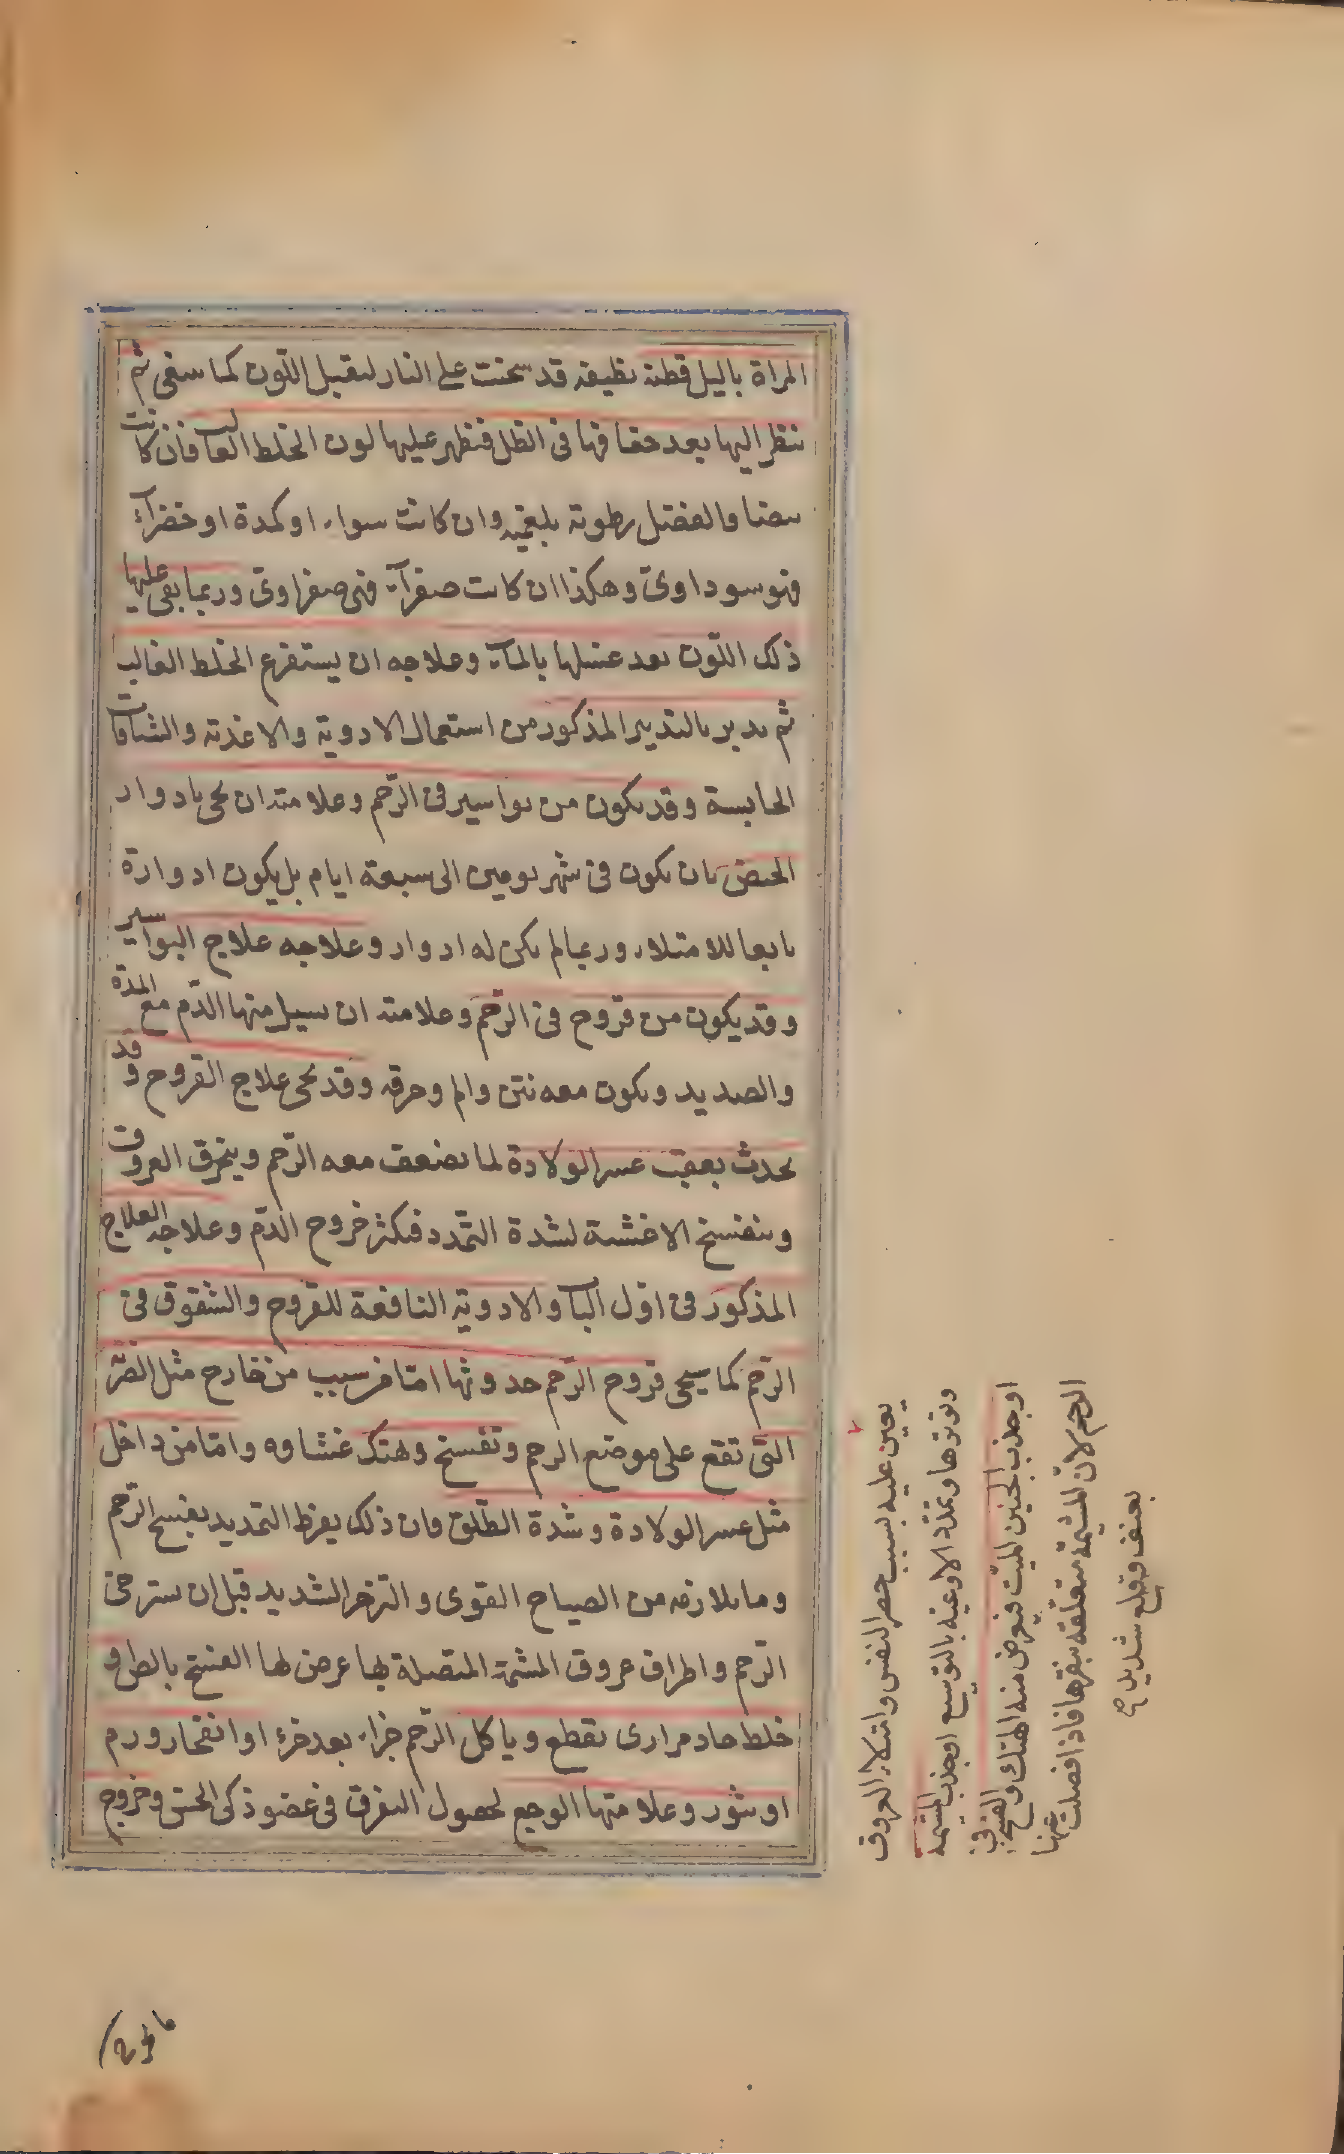 المراة بالیل قطنه نظیفه قد سخنت علی النار لتقبل اللّون کما ینبغی ثم
تنظر الیها بعد جفافها فی الظل فتظهر علیها لون الخلط الغالب فان کانت
بیضا والفضل رطوبة بلغمیه وان کانت سواء او کمدة او خضرآء
فهو سوداوی وهکذا ان کانت صفرآء فهی صفراوی وربما بقی علیها
ذلک اللّون بعد غسلها بالمآء وعلاجه ان یستفرغ الخلط الغالب
ثم یدبر بالتدبیر المذکور من استعمال الادویة والاغذیة والشیافات
الحابسة وقد یکون من بواسیر فی الرّحم وعلامته ان یجی بادوار
الحیض بان یکون فی شهر یومین الی سبعة ایام بل یکون ادواره
تابعا للامتلاء وربما لم یکن له ادوار وعلاجه علاج البواسیر
وقد یکون من قروح فی الرّحم وعلامته ان یسیل منها الدّم مع المدّة
والصدید ویکون معه نتن والم وحرقه وقد یجی علاج القروح وقد
یحدث بعقب عسر الولادة لما یضعف معه الرّحم وینخرق العروق
وینفسخ الاغشیة لشدة التمدد فیکثر خروج الدّم وعلاجه العلاج
المذکور فی اوّل الباب والادویة النافعة للقروح والشقوق فی
الرّحم کما سیجی قروح الرّحم حدوثها امّا من سبب من خارج مثل الضّربة
التّی تقع علی موضع الرحم وتفسخ وهتک غشاوه وامّا من داخل
مثل عسر الولادة وشدة الطّلق وان ذلک یفرط التمدید یفسخ الرّحم
وما یلازمه من الصیاح القوی والتزحر الشدید قبل ان یسترخی
الرّحم واطراف عروق المشیمة المتصلة بها عرض لها الفسخ بالطل و
خلط حاد مراری یقطع ویاکل الرّحم جزاء بعد جزء او انفجار ورم
او بثور وعلامتها الوجع لحصول التفرق فی عضو ذکی الحس وخروج
یعین علیه بسبب حصر النفس وامتلاء العروق
وتوترها وتمدّد الاوعیه بالتوسیع او جذب المشیمه
او جذب الجنین المیّت فیعرض منه الهتک والفسخ فی
الرحم لانّ المشیمة متعلّقه بنقرها فاذا فصلت عنها
بعنف وقلع شدید صح